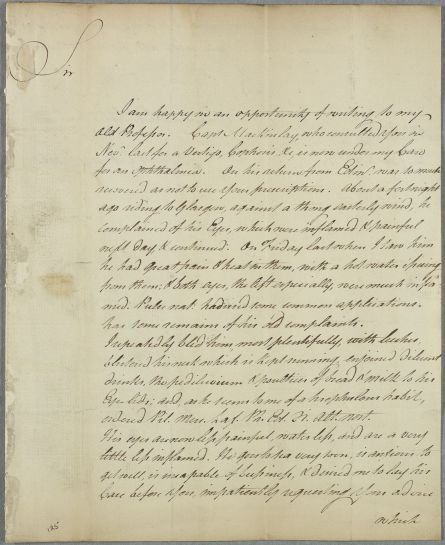 Sir
I am happy in an opportunity of writing to my
Old Professor. Capt. Mackinlay, who consulted you in
Novr. last for a Vertigo, &c, is now under my Care
for an Ophthalmia. On his return from Edinr. was so much
recovered as not to use your prescriptions. About a fortnight
ago riding to Glasgow, against a strong easterly wind, he
complained of his Eyes, which were inflamed & painful
next day & continued. On Friday last when I saw him
he had great pain & heat in them, with a hot water issuing
from them: & both eyes, the left especially, were much infla-
med. Pulse nat. had used some common applications.
has some remains of his old complaints.
I repeatedly bled him most plentifully, with leeches,
blistered his neck which is kept running, enjoined diluent
drinks, the pediluvium & poultices of bread & milk to his
Eye lids: and, as he seems to me of a scrophulous habit,
ordered Pil. Merc.
His eyes are now less painful, water less, and are a very
little less inflamed. He grows very , is anxious to
get well, is incapable of business, & desired me to lay his
Case before you, impatiently requesting your advice
which
125